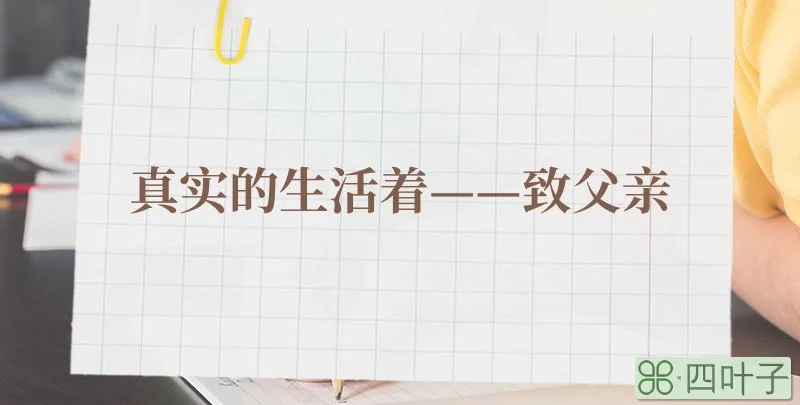 真实的生活着——致父亲
四叶子